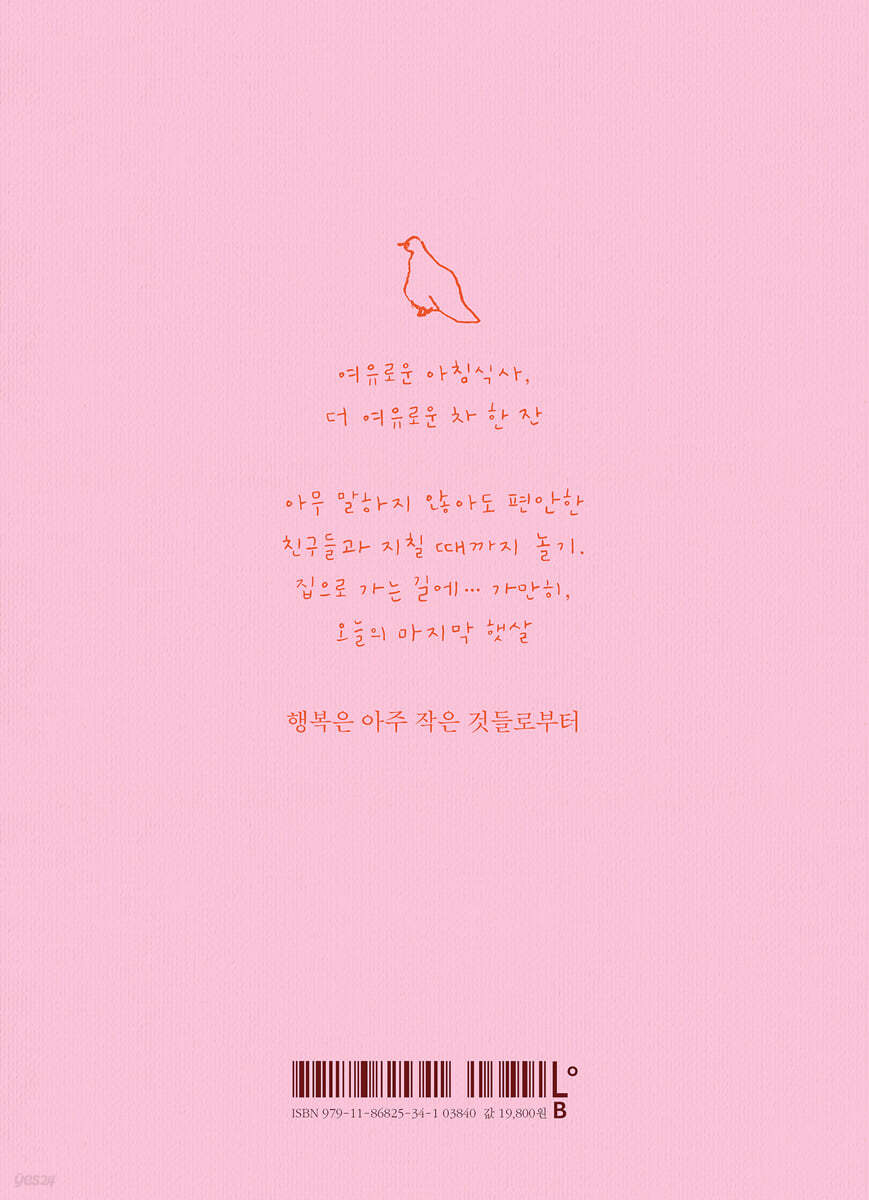 여유로운 아침식사,
더 여유로운 차 한 잔
아무 말하지 않아도 편안한
친구들과 지칠 때까지 놀기.
집으로 가는 길에… 가만히,
오늘의 마지막 햇살
행복은 아주 작은 것들로부터
ISBN 979-11-86825-34-1 03840 값 19,800원
L°
B
yes24